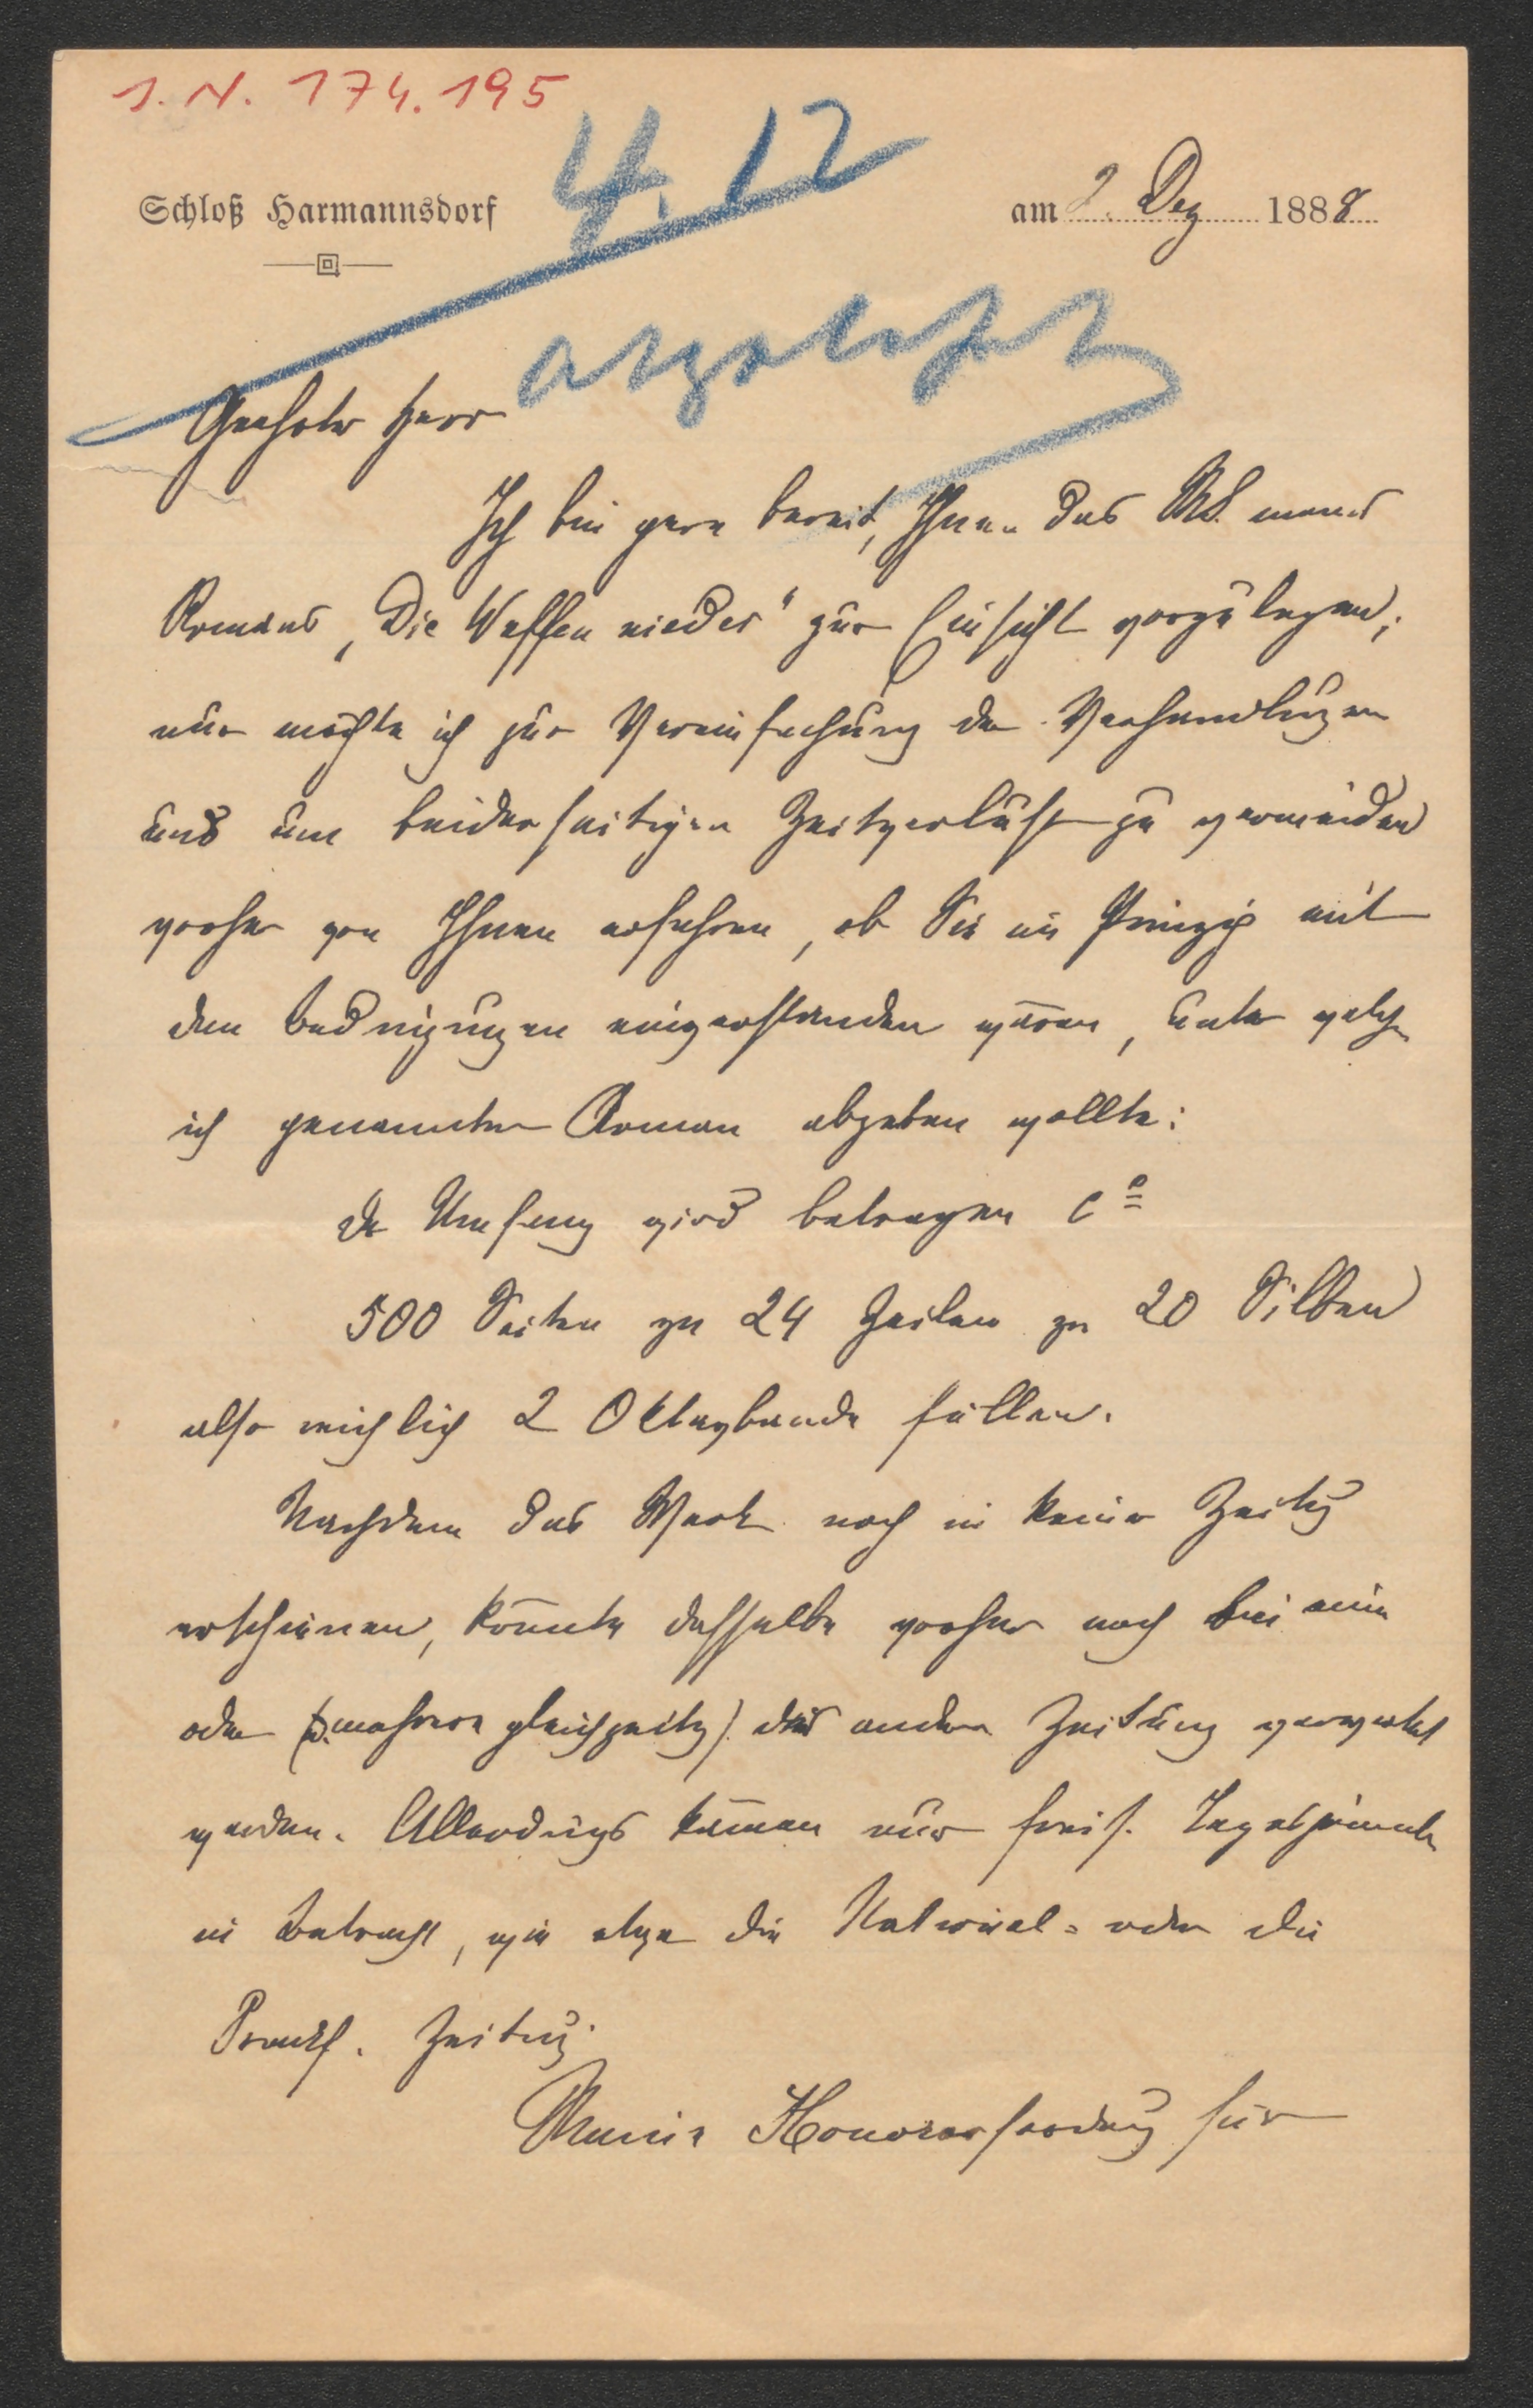 I. N. 174.195
4. 12
Schloß Harmannsdorf
am 2. Dez 1888
abgelehnt
Geehrter Herr
Ich bin gern bereit, Ihnen das MS. meines
Romans „Die Waffen nieder" zur Einsicht vorzulegen;
nur möchte ich zur Vereinfachung der Verhandlungen
und um beiderseitigen Zeitverlust zu vermeiden
vorher von Ihnen erfahren, ob Sie im Prinzip mit
den Bedingungen einverstanden wären, unter welchen
ich genannten Roman abgeben wollte:
Der Umfang wird betragen ca
500 Seiten zu 24 Zeilen zu 20 Silben
also reichlich 2 Oktavbände füllen.
Nachdem das Werk noch in keiner Zeitung
erschienen, könnte dasselbe vorher noch bei einer
oder (mehrere gleichzeitig) der anderen Zeitung verwertet
werden. Allerdings kämen nur freis. Tagesjournale
in Betracht, wie etwa die National- oder die
Frankf. Zeitung.
Meine Honorarforderung für